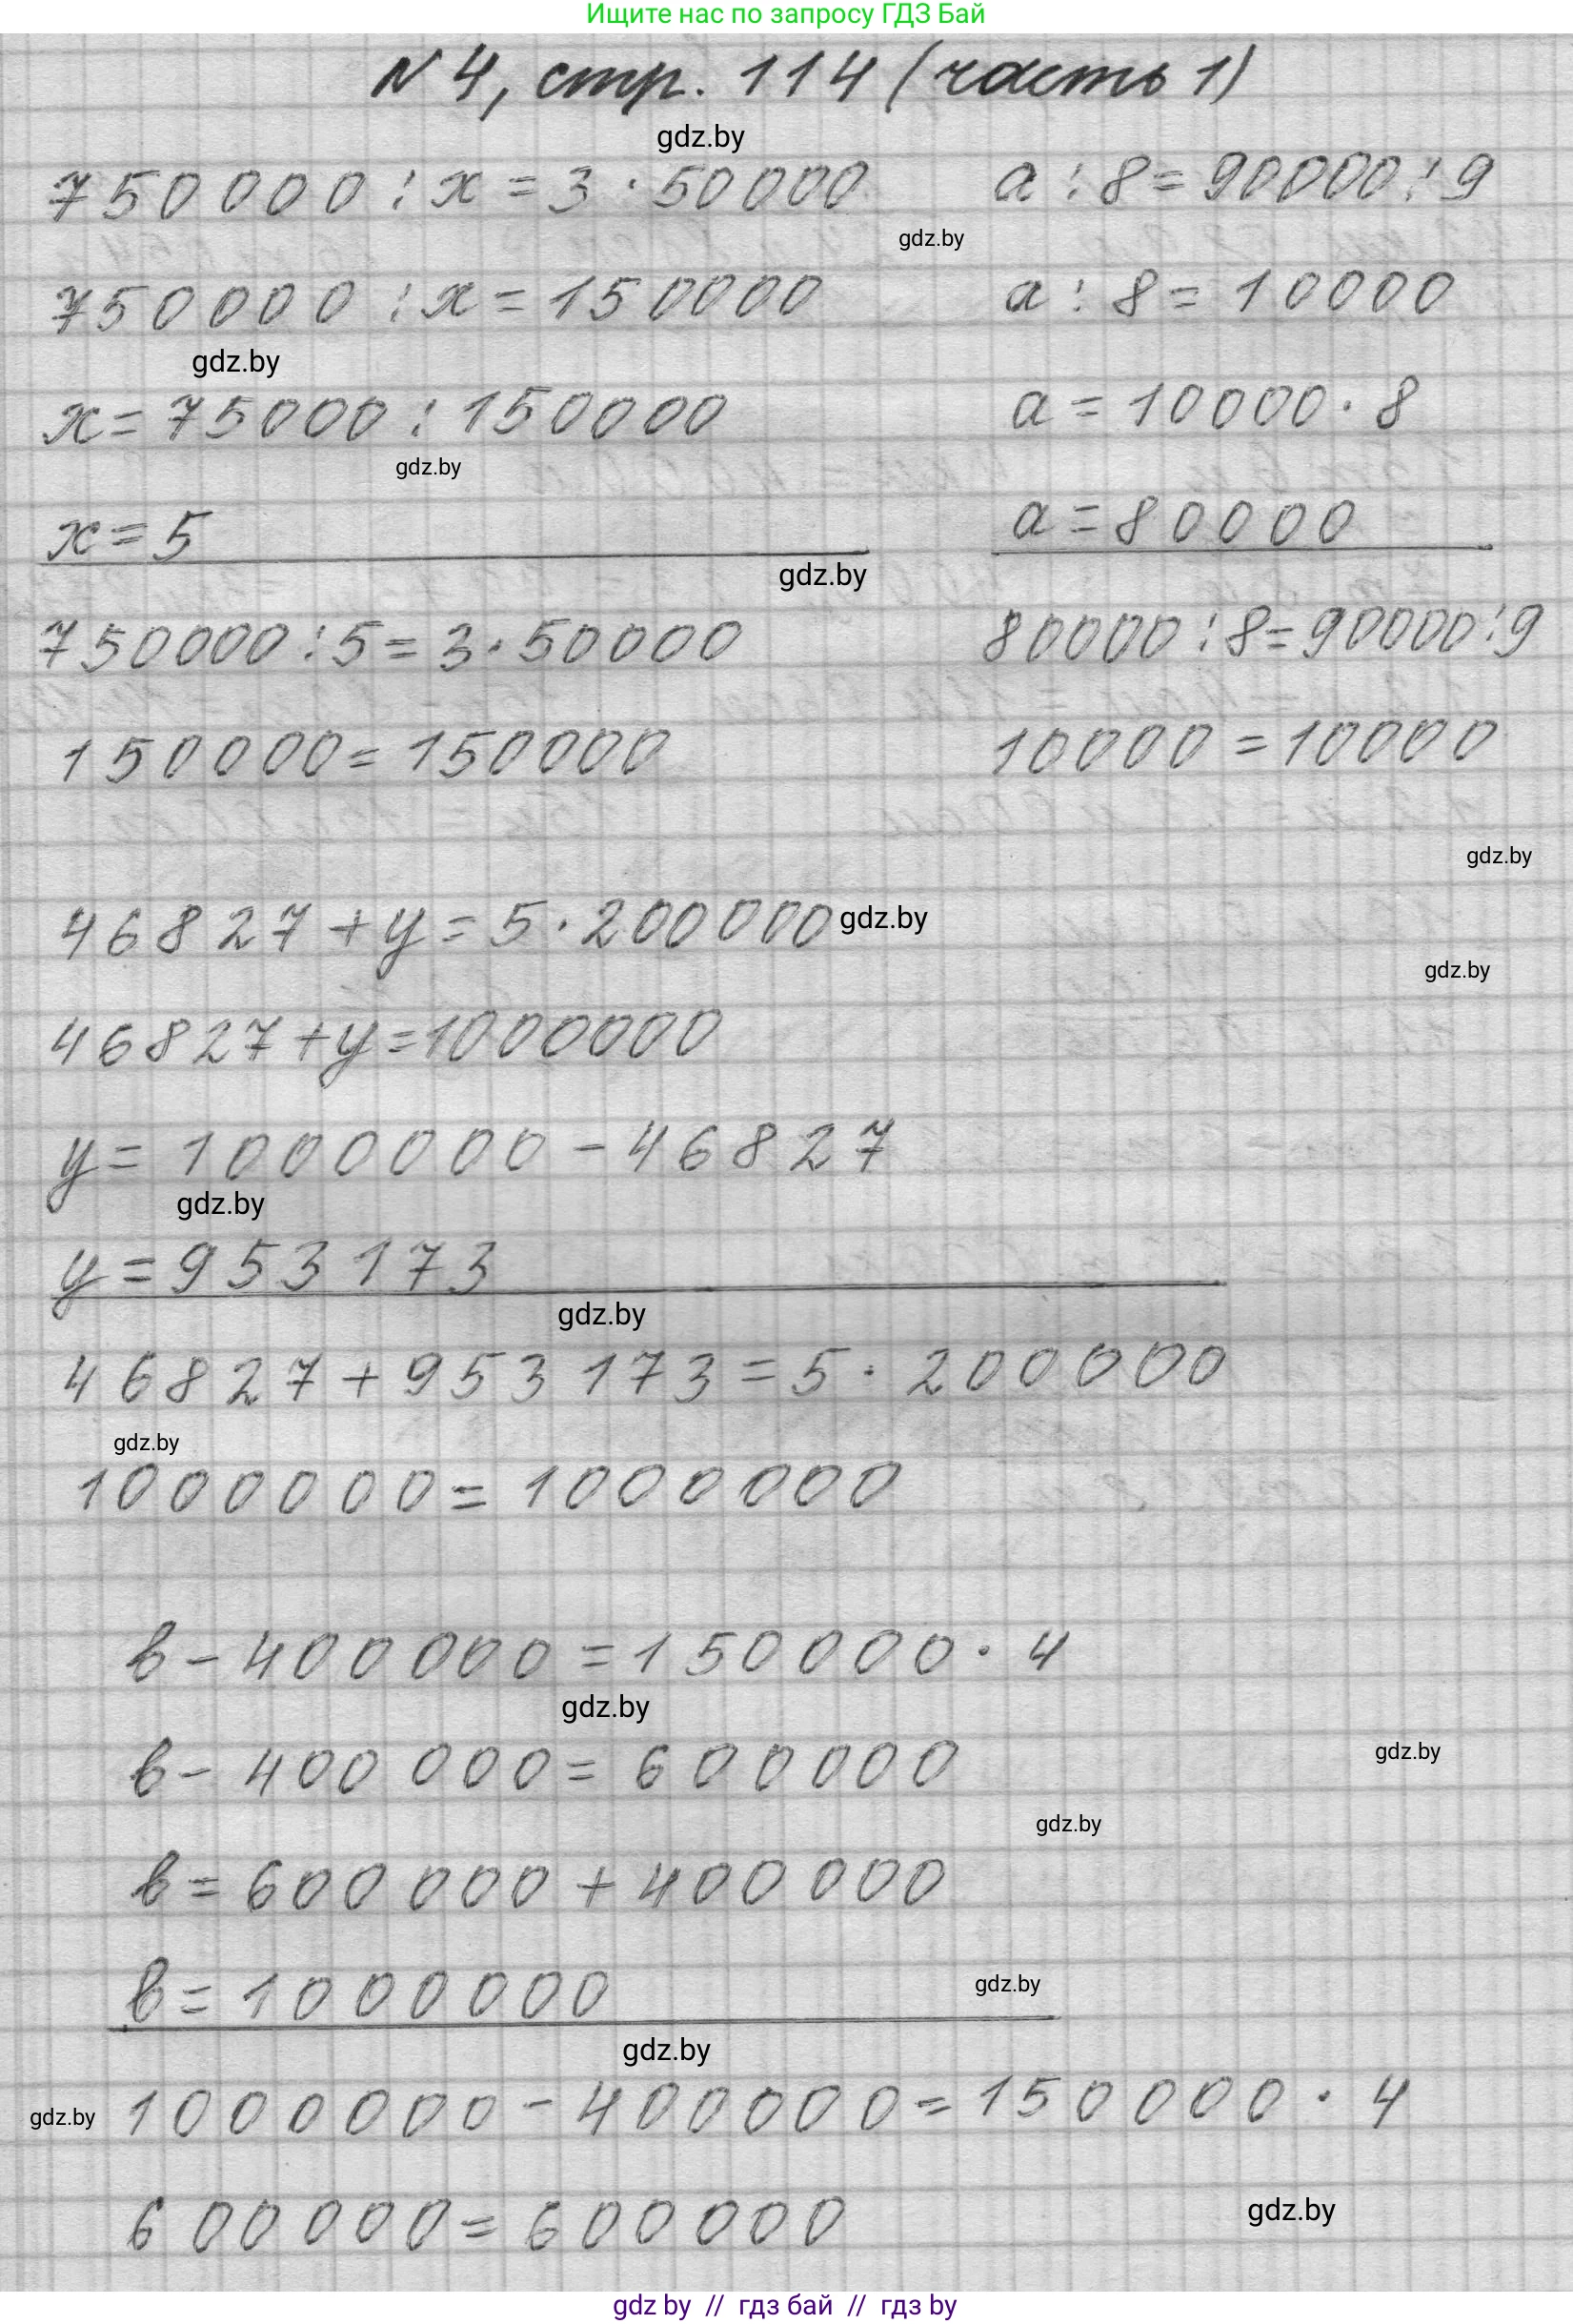 Ищите нас по запросу ГДЗ Бай
N 4, стр. 114 (часть 1)
gdz.by
750000 : x = 3 · 50000
gdz.by
750000 : x = 150000
gdz.by
x = 75000 : 150000
gdz.by
x = 5
gdz.by
750000 : 5 = 3 · 50000
150000 = 150000
a : 8 = 90000 : 9
a : 8 = 10000
a = 10000 · 8
a = 80000
80000 : 8 = 90000 : 9
10000 = 10000
gdz.by
46827 + y = 5 · 200000
gdz.by
gdz.by
46827 + y = 1000000
y = 1000000 - 46827
gdz.by
y = 953173
gdz.by
46827 + 953173 = 5 · 200000
gdz.by
1000000 = 1000000
в - 400000 = 150000 · 4
gdz.by
в - 400000 = 600000
gdz.by
gdz.by
в = 600000 + 400000
в = 1000000
gdz.by
gdz.by
gdz.by
1000000 - 400000 = 150000 · 4
600000 = 600000
gdz.by
gdz by // гдз бай // гдз by